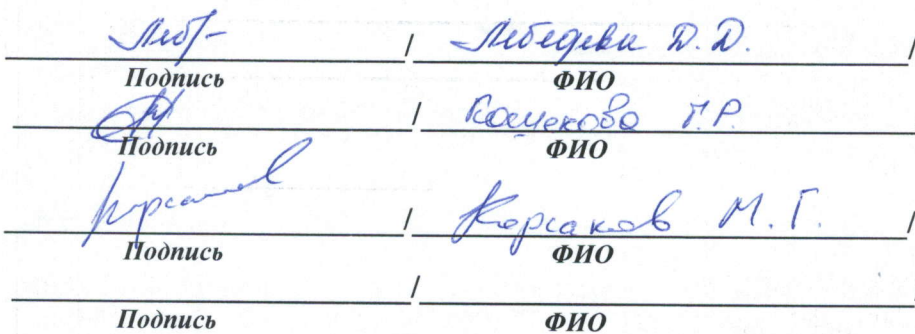 Леб /  Лебедева Д. Д. /
Подпись ФИО
/ Кошекова Г.Р.
Подпись ФИО
Корсаков / Корсаков М. Г. /
Подпись ФИО
/
Подпись ФИО